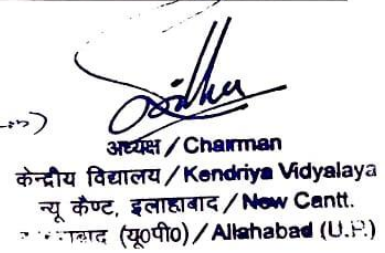 अध्यक्ष / Chairman
केन्द्रीय विद्यालय / Kendriya Vidyalaya
न्यू कैण्ट, इलाहाबाद / New Cantt.
(यू०पी०) / Allahabad (U.P.)